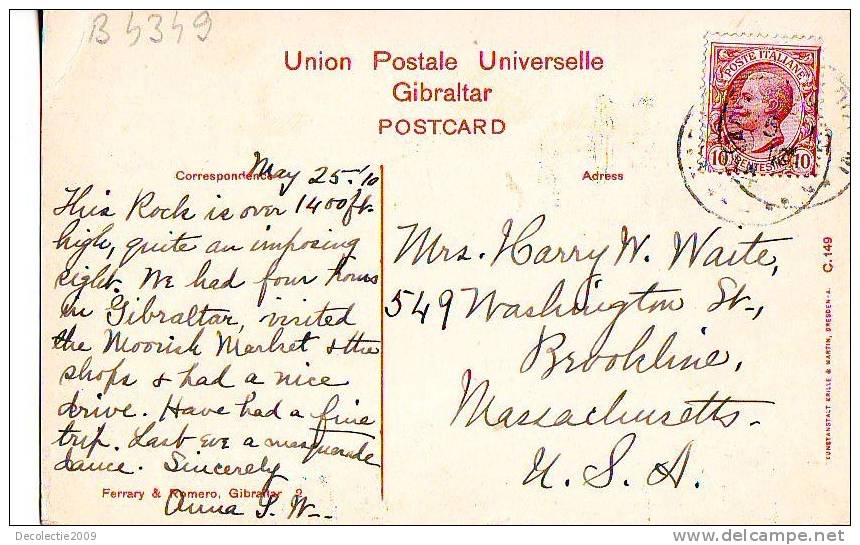 B 4349
Union Postale Universelle
Gibraltar
POSTCARD
POSTE ITALIANE
10 10
Correspondence
Adress
May 25-/10
This Rock is over 1400 ft.
high, quite an imposing
sight. We had four hours
in Gibraltar, visited
the Moorish Market & the
shops & had a nice
drive. Have had a fine
trip. Last eve a masquerade
dance. Sincerely
Anna S. W-.
Mrs. Harry W. Waite,
549 Washington St.,
Brookline,
Massachusetts-
U. S. A.
Ferrary & Romero, Gibraltar 2
C. 149
KUNSTANSTALT KRILLE & MARTIN, DRESDEN-A.
Decolectie2009
delcampe.net